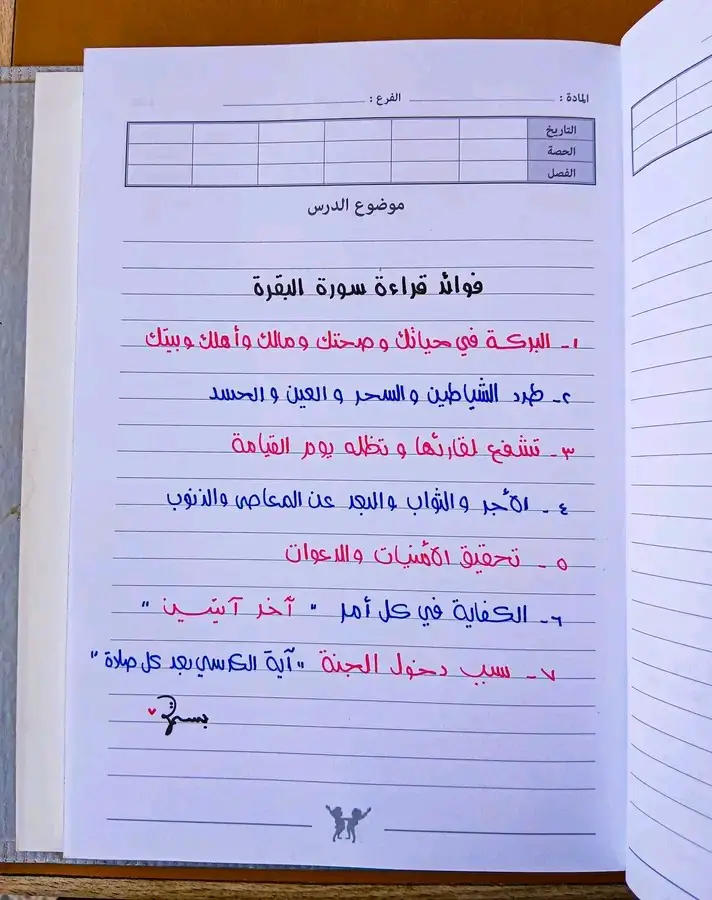 المادة : الفرع :
التاريخ
الحصة
الفصل
موضوع الدرس
فوائد قراءة سورة البقرة
١- البركة في حياتك و صحتك ومالك وأهلك وبيتك
٢- طرد الشياطين و السحر و العين و الحسد
٣- تشفع لقارئها و تظله يوم القيامة
٤- الأجر و الثواب والبعد عن المعاصي والذنوب
٥- تحقيق الأمنيات والدعوات
٦- الكفاية في كل أمر " آخر آيتين "
٧- سبب دخول الجنة " آية الكرسي بعد كل صلاة "